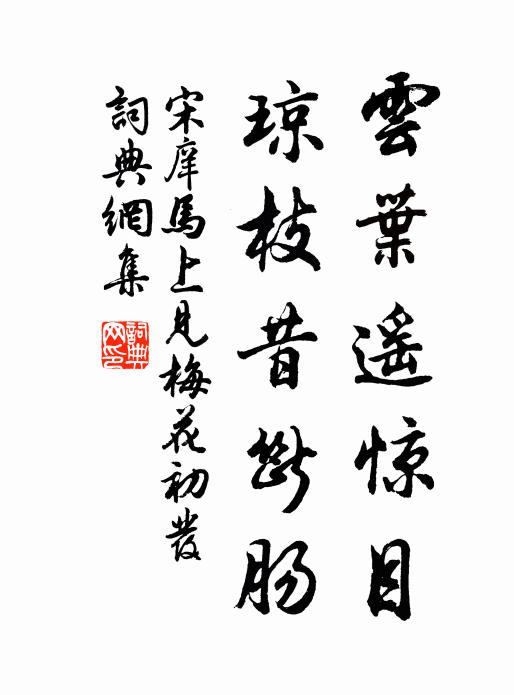 雲葉遥惊目
琼枝昔断肠
宋庠馬上見梅花初發
詞典網集
詞典网印